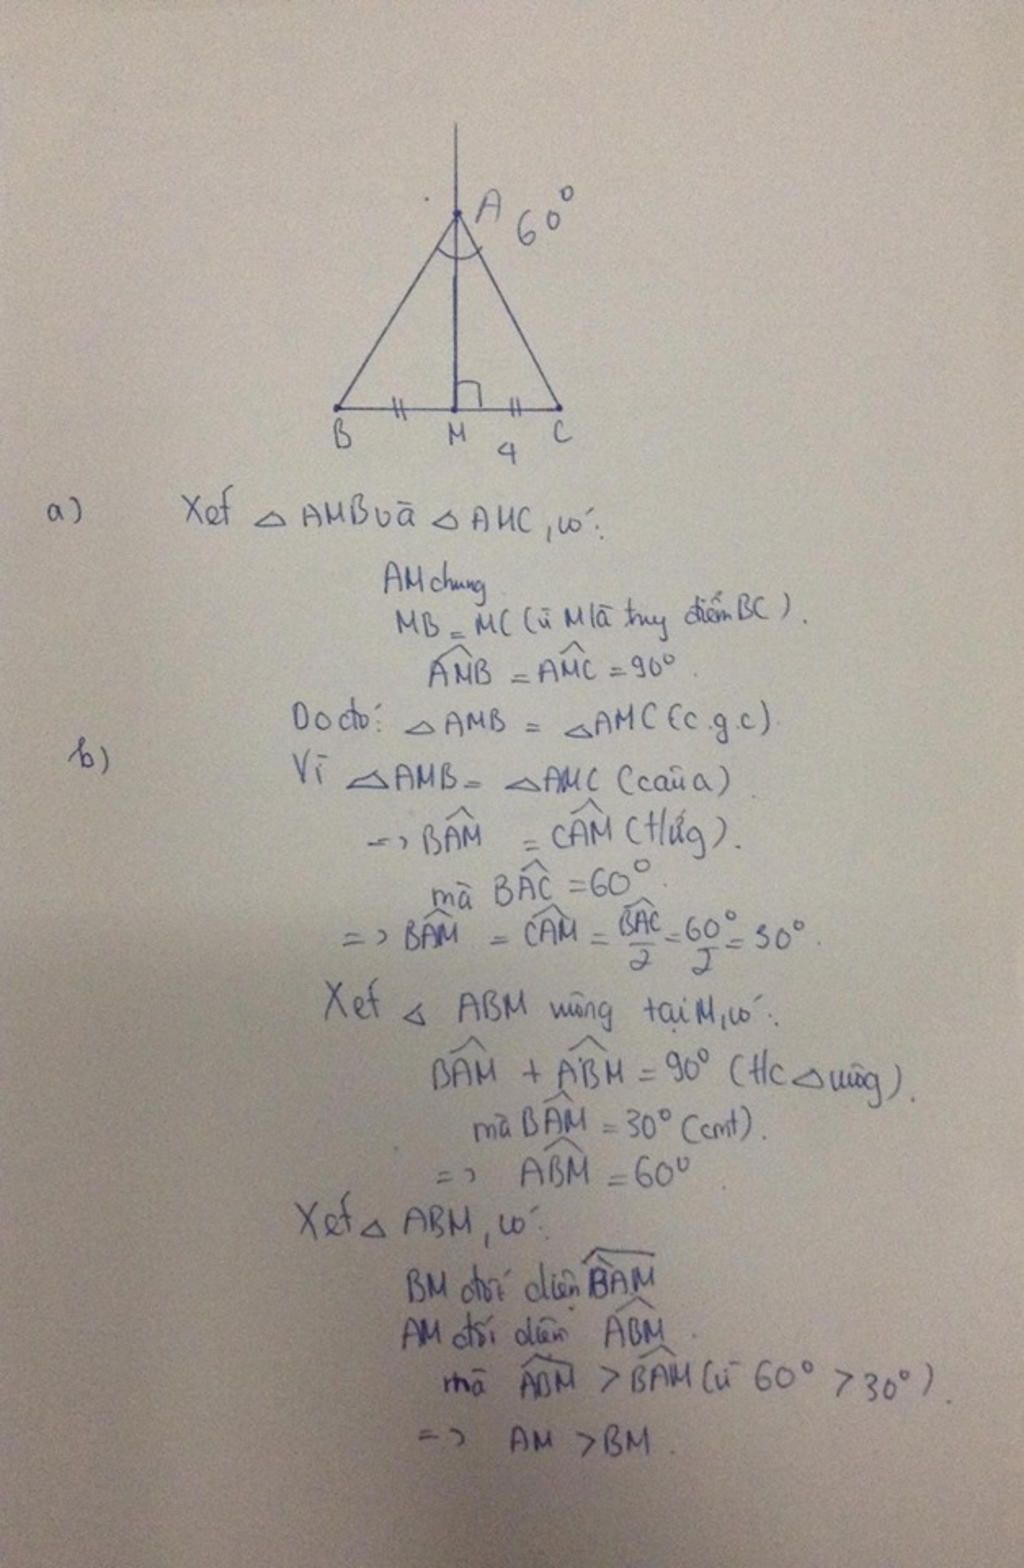 A 60°
B M C
4
a) Xét △ AMB và △ AMC, có:
AM chung
MB = MC (vì M là trung điểm BC).
AMB̂ = AMĈ = 90°.
Do đó: △ AMB = △ AMC (c.g.c)
b) Vì △ AMB = △ AMC (câu a)
=> BÂM = CÂM (t/ứg).
mà BÂC = 60°.
=> BÂM = CÂM = BÂC/2 = 60°/2 = 30°.
Xét △ ABM vuông tại M, có:
BÂM + AB̂M = 90° (t/c △ vuông).
mà BÂM = 30° (cmt).
=> AB̂M = 60°.
Xét △ ABM, có:
BM đối diện BÂM
AM đối diện AB̂M.
mà AB̂M > BÂM (vì 60° > 30°).
=> AM > BM.